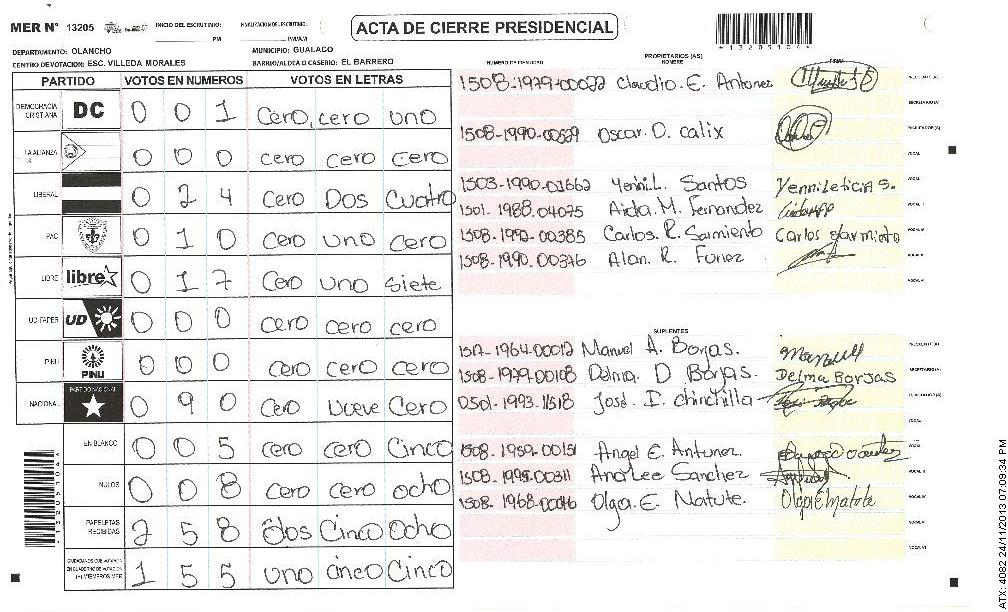 MER N° 13205 INICIO DEL ESCRUTINIO: PM FINALIZACION DEL ESCRUTINIO: PM/AM
ACTA DE CIERRE PRESIDENCIAL
DEPARTAMENTO: OLANCHO MUNICIPIO: GUALACO
CENTRO DE VOTACION: ESC. VILLEDA MORALES BARRIO/ALDEA O CASERIO: EL BARRERO
PARTIDO VOTOS EN NUMEROS VOTOS EN LETRAS
DEMOCRACIA CRISTIANA DC 0 0 1 Cero, cero uno
LA ALIANZA 0 0 0 cero cero cero
LIBERAL 0 2 4 Cero Dos Cuatro
PAC 0 1 0 Cero uno Cero
LIBRE libre 0 1 7 Cero uno siete
UD-FAPER UD 0 0 0 cero cero cero
PINU PINU 0 0 0 cero cero cero
NACIONAL PARTIDO NACIONAL 0 9 0 Cero nueve Cero
EN BLANCO 0 0 5 cero cero Cinco
NULOS 0 0 8 cero cero ocho
PAPELETAS RECIBIDAS 2 5 8 dos Cinco Ocho
CIUDADANOS QUE VOTARON EN CUADERNO DE VOTACION (+) MIEMBROS MER 1 5 5 uno cinco Cinco
PROPIETARIOS (AS)
NUMERO DE IDENTIDAD NOMBRE FIRMA
1508-1979-00022 Claudio. E. Antonez PRESIDENTE (A)
SECRETARIO (A)
1508-1990-00529 Oscar. D. calix ESCRUTADOR (A)
VOCAL
1503-1990-01662 Yenni.L. Santos Yenni Leticia S. VOCAL
1501-1988-04075 Aida. M. Fernandez VOCAL
1508-1992-00385 Carlos. R. Sarmiento Carlos Sarmiento VOCAL
1508-1990-00376 Alan. R. Funez VOCAL
VOCAL
SUPLENTES
1517-1964-00012 Manuel A. Borjas. Manuel PRESIDENTE (A)
1508-1979-00108 Delma. D Borjas. Delma Borjas SECRETARIO (A)
0501-1993-11518 José. I. chinchilla ESCRUTADOR (A)
VOCAL
1508-1959-00151 Angel E. Antunez VOCAL
1508-1995-00311 AnaLee Sanchez VOCAL
1508-1968-00046 Olga. E. Matute. Olga E Matute VOCAL
VOCAL
VOCAL
ATX: 4082 24/11/2013 07:09:34 PM